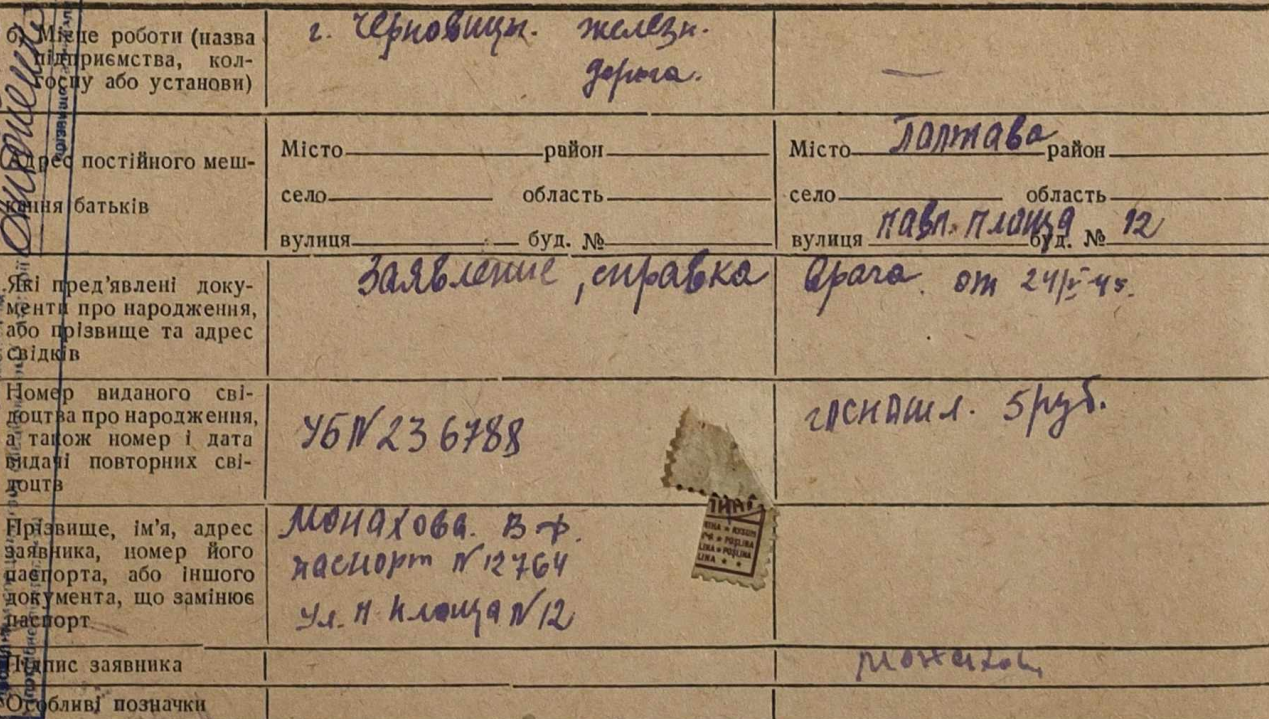 б) Місце роботи (назва підприємства, колгоспу або установи)
г. Черновицы. железн.
дорога.
—
Адрес постійного мешкання батьків
Місто район
село область
вулиця буд. №
Місто Полтава район
село область
вулиця Павл. площа буд. № 12
Які пред'явлені документи про народження, або прізвище та адрес свідків
Заявление, справка врача от 24/
Номер виданого свідоцтва про народження, а також номер і дата видачі повторних свідоцтв
УБ N 236788
госпошл. 5 руб.
Прізвище, ім'я, адрес заявника, номер його паспорта, або іншого документа, що замінює паспорт
Монахова. В. Ф.
паспорт N 12764
ул. П площа N 12
POŞLINA
Підпис заявника
Особливі позначки